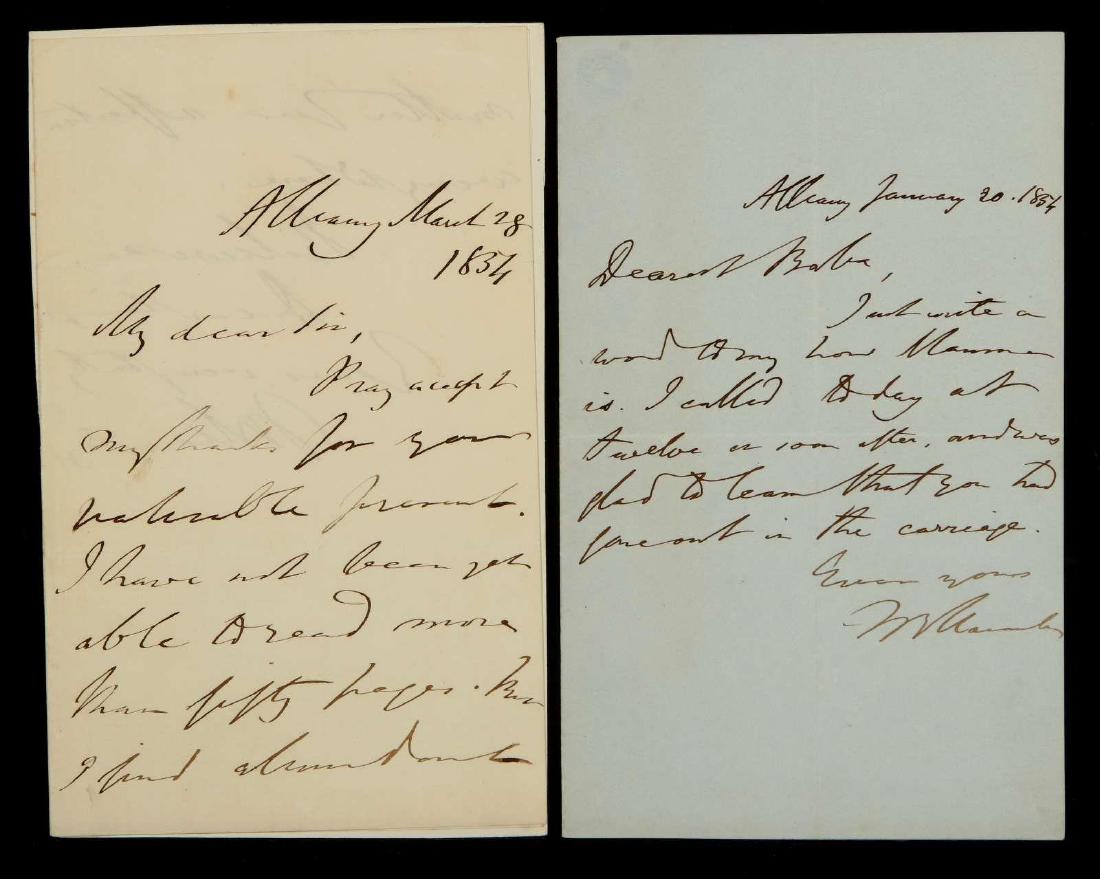 Albany March 28
1854
My dear Sir,
Pray accept
my thanks for your
valuable present.
I have not been yet
able to read more
than fifty pages. But
I find abundant
Albany January 20. 1854
Dearest Baba,
Just write a
word to say how Mamma
is. I called to day at
twelve or soon after, and was
glad to learn that you had
gone out in the carriage.
Ever yours
TBMacaulay